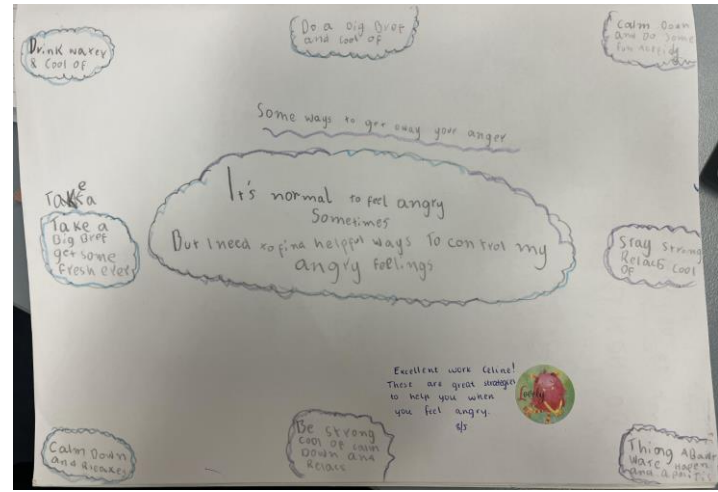 Drink warer
& Cool of
Do a Big Bref
and cool of
Calm Down
and Do Some
fun
Some ways to get away your anger
It's normal to feel angry
Sometimes
But I need to find helpful ways To control my
angry feelings
Take a
Big Bref
get some
fresh
Stay Strong
Relacs Cool
Of
Excellent work Celine!
These are great strategies
to help you when
you feel angry.
Lovely
Calm Down
and
Be strong
cool of calm
Down and
Relacs
Thiong